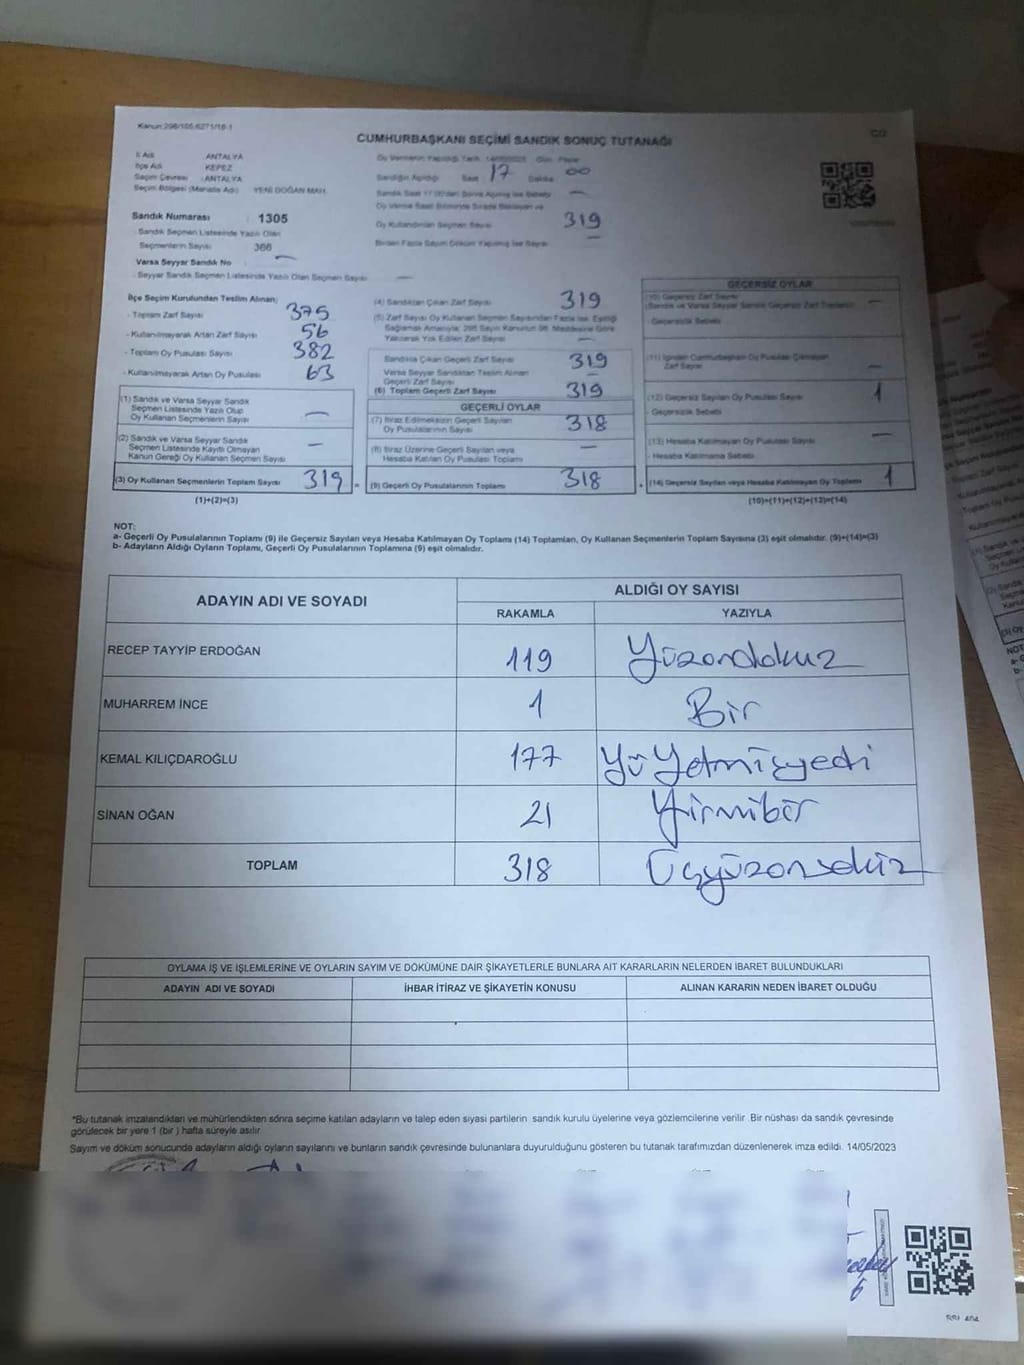 Kanun:298/105,6271/18-1
CUMHURBAŞKANI SEÇİMİ SANDIK SONUÇ TUTANAĞI
İl Adı ANTALYA
İlçe Adı KEPEZ
Seçim Çevresi ANTALYA
Seçim Bölgesi (Mahalle Adı) YENİ DOĞAN MAH.
Sandık Numarası 1305
- Sandık Seçmen Listesinde Yazılı Olan
Seçmenlerin Sayısı 366
Varsa Seyyar Sandık No —
- Seyyar Sandık Seçmen Listesinde Yazılı Olan Seçmen Sayısı —
Oy Vermenin Yapıldığı Tarih 14/05/2023 Gün Pazar
Sandığın Açıldığı Saat 17 Dakika 00
Sandık Saat 17.00'den Sonra Açılmış İse Sebebi —
Oy Verme Saati Bitiminde Sırada Bekleyen ve
Oy Kullandırılan Seçmen Sayısı 319
Birden Fazla Sayım Döküm Yapılmış İse Sayısı —
İlçe Seçim Kurulundan Teslim Alınan;
- Toplam Zarf Sayısı 375
- Kullanılmayarak Artan Zarf Sayısı 56
- Toplam Oy Pusulası Sayısı 382
- Kullanılmayarak Artan Oy Pusulası 63
(1) Sandık ve Varsa Seyyar Sandık
Seçmen Listesinde Yazılı Olup
Oy Kullanan Seçmenlerin Sayısı —
(2) Sandık ve Varsa Seyyar Sandık
Seçmen Listesinde Kayıtlı Olmayan
Kanun Gereği Oy Kullanan Seçmen Sayısı —
(3) Oy Kullanan Seçmenlerin Toplam Sayısı 319 =
(1)+(2)=(3)
(4) Sandıktan Çıkan Zarf Sayısı 319
(5) Zarf Sayısı Oy Kullanan Seçmen Sayısından Fazla İse, Eşitliği
Sağlamak Amacıyla; 298 Sayılı Kanunun 98. Maddesine Göre
Yakılarak Yok Edilen Zarf Sayısı —
Sandıkta Çıkan Geçerli Zarf Sayısı 319
Varsa Seyyar Sandıktan Teslim Alınan
Geçerli Zarf Sayısı —
(6) Toplam Geçerli Zarf Sayısı 319
GEÇERLİ OYLAR
(7) İtiraz Edilmeksizin Geçerli Sayılan
Oy Pusulalarının Sayısı 318
(8) İtiraz Üzerine Geçerli Sayılan veya
Hesaba Katılan Oy Pusulası Toplamı —
(9) Geçerli Oy Pusulalarının Toplamı 318 +
GEÇERSİZ OYLAR
(10) Geçersiz Zarf Sayısı
(Sandık ve Varsa Seyyar Sandık Geçersiz Zarf Toplamı) —
- Geçersizlik Sebebi
(11) İçinden Cumhurbaşkanı Oy Pusulası Çıkmayan
Zarf Sayısı —
(12) Geçersiz Sayılan Oy Pusulası Sayısı 1
- Geçersizlik Sebebi
(13) Hesaba Katılmayan Oy Pusulası Sayısı —
- Hesaba Katılmama Sebebi
(14) Geçersiz Sayılan veya Hesaba Katılmayan Oy Toplamı 1
(10)+(11)+(12)+(13)=(14)
NOT:
a- Geçerli Oy Pusulalarının Toplamı (9) ile Geçersiz Sayılan veya Hesaba Katılmayan Oy Toplamı (14) Toplamları, Oy Kullanan Seçmenlerin Toplam Sayısına (3) eşit olmalıdır. (9)+(14)=(3)
b- Adayların Aldığı Oyların Toplamı, Geçerli Oy Pusulalarının Toplamına (9) eşit olmalıdır.
ADAYIN ADI VE SOYADI ALDIĞI OY SAYISI
RAKAMLA YAZIYLA
RECEP TAYYİP ERDOĞAN 119 Yüzondokuz
MUHARREM İNCE 1 Bir
KEMAL KILIÇDAROĞLU 177 Yü Yetmişyedi
SİNAN OĞAN 21 Yirmibir
TOPLAM 318 Üçyüzonsekiz
OYLAMA İŞ VE İŞLEMLERİNE VE OYLARIN SAYIM VE DÖKÜMÜNE DAİR ŞİKAYETLERLE BUNLARA AİT KARARLARIN NELERDEN İBARET BULUNDUKLARI
ADAYIN ADI VE SOYADI İHBAR İTİRAZ VE ŞİKAYETİN KONUSU ALINAN KARARIN NEDEN İBARET OLDUĞU
*Bu tutanak imzalandıktan ve mühürlendikten sonra seçime katılan adayların ve talep eden siyasi partilerin sandık kurulu üyelerine veya gözlemcilerine verilir. Bir nüshası da sandık çevresinde
görülecek bir yere 1 (bir) hafta süreyle asılır.
Sayım ve döküm sonucunda adayların aldığı oyların sayılarını ve bunların sandık çevresinde bulunanlara duyurulduğunu gösteren bu tutanak tarafımızdan düzenlenerek imza edildi. 14/05/2023